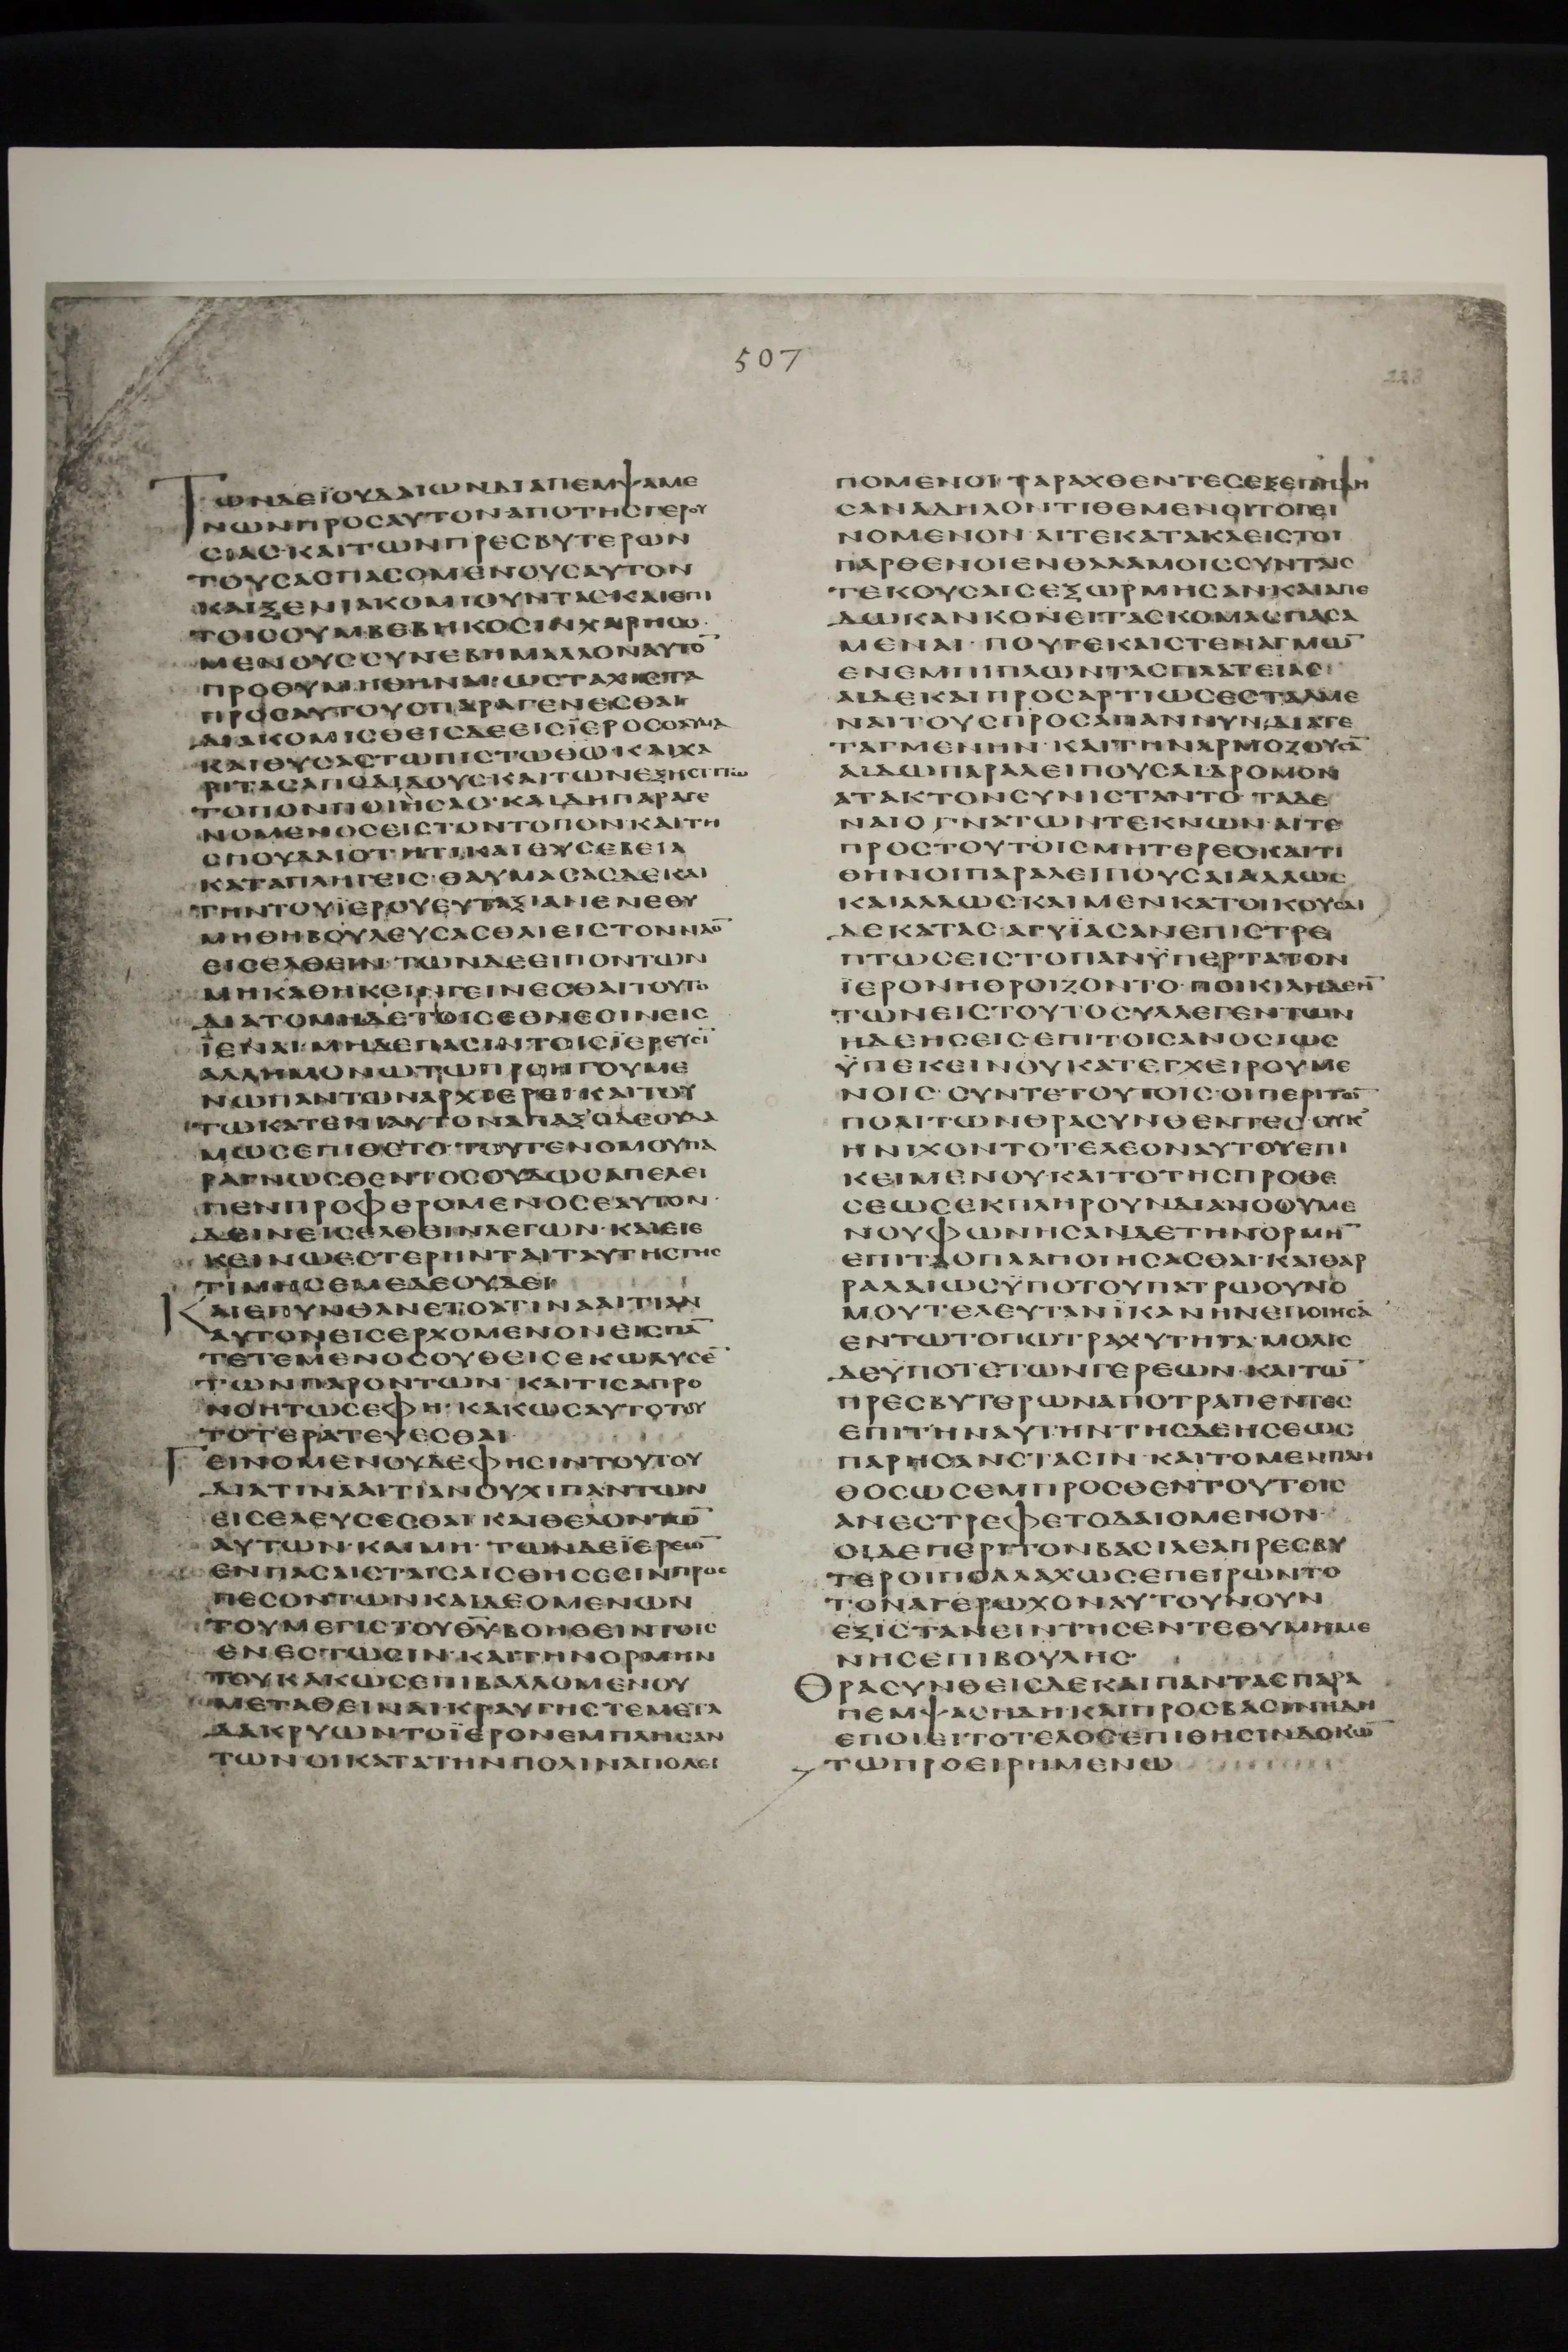 507
ΤΩΝΔΕΪΟΥΔΑΙΩΝΔΙΑΠΕΜΨΑΜΕ
ΝΩΝΠΡΟΣΑΥΤΟΝΑΠΟΤΗΣΓΕΡΟΥ
ΣΙΑΣ·ΚΑΙΤΩΝΠΡΕΣΒΥΤΕΡΩΝ
ΤΟΥΣΑΣΠΑΣΟΜΕΝΟΥΣΑΥΤΟΝ
ΚΑΙΞΕΝΙΑΚΟΜΙΟΥΝΤΑΣ·ΚΑΙΕΠΙ
ΤΟΙΣΣΥΜΒΕΒΗΚΟΣΙΝΧΑΡΗΣΟ
ΜΕΝΟΥΣΣΥΝΕΒΗΜΑΛΛΟΝΑΥΤΟ̅
ΠΡΟΘΥΜΗΘΗΝΑΙ·ΩΣΤΑΧΙΣΤΑ
ΠΡΟΣΑΥΤΟΥΣΠΑΡΑΓΕΝΕΣΘΑΙ·
ΔΙΑΚΟΜΙΣΘΕΙΣΔΕΕΙΣΪΕΡΟΣΟΛΥΜΑ
ΚΑΙΘΥΣΑΣΤΩΠΙΣΤΩΘΩ·ΚΑΙΧΑ
ΡΙΤΑΣΑΠΟΔΙΔΟΥΣΚΑΙΤΩΝΕΞΗΣΤΙΤΩ
ΤΟΠΟΝΠΟΙΗΣΑΣ·ΚΑΙΔΗΠΑΡΑΓΕ
ΝΟΜΕΝΟΣΕΙΣΤΟΝΤΟΠΟΝ·ΚΑΙΤΗ
ΣΠΟΥΔΑΙΟΤΗΤΙ·ΚΑΙΕΥΣΕΒΕΙΑ
ΚΑΤΑΠΛΗΓΕΙΣ·ΘΑΥΜΑΣΑΣΔΕΚΑΙ
ΤΗΝΤΟΥΪΕΡΟΥΕΥΤΑΞΙΑΝΕΝΕΘΥ
ΜΗΘΗΒΟΥΛΕΥΣΑΣΘΑΙΕΙΣΤΟΝΝΑΟ̅
ΕΙΣΕΛΘΕΙΝ·ΤΩΝΔΕΕΙΠΟΝΤΩΝ
ΜΗΚΑΘΗΚΕΙΝΓΕΙΝΕΣΘΑΙΤΟΥΤΟ
ΔΙΑΤΟΜΗΔΕΤΟΙΣΕΘΝΕΣΙΝΕΙΣ
ΪΕΝΑΙ·ΜΗΔΕΠΑΣΙΝΤΟΙΣΪΕΡΕΥΣΙ̅
ΑΛΛΗΜΟΝΩΤΩΠΡΟΗΓΟΥΜΕ
ΝΩΠΑΝΤΩΝΑΡΧΙΕΡΕΙ·ΚΑΙΤΟΥ
ΤΩΚΑΤΕΝΙΑΥΤΟΝΑΠΑΞΟΔΕΟΥΔΑ
ΜΩΣΕΠΙΘΕΤΟ·ΤΟΥΓΕΝΟΜΟΥΠΑ
ΡΑΓΝΩΣΘΕΝΤΟΣΟΥΔΩΣΑΠΕΛΕΙ
ΠΕΝΠΡΟΦΕΡΟΜΕΝΟΣΕΑΥΤΟΝ·
ΔΕΙΝΕΙΣΕΛΘΕΙΝΛΕΓΩΝ·ΚΑΙΕΙΕ
ΚΕΙΝΩΕΣΤΕΡΗΝΤΑΙΤΑΥΤΗΣΤΗΣ
ΤΙΜΗΣΕΜΕΔΕΟΥΔΕΙ
ΚΑΙΕΠΥΝΘΑΝΕΤΟΔΙΤΙΝΑΑΙΤΙΑΝ
ΑΥΤΟΝΕΙΣΕΡΧΟΜΕΝΟΝΕΙΣΠΑ̅
ΤΕΤΕΜΕΝΟΣΟΥΘΕΙΣΕΚΩΛΥΣΕ̅
ΤΩΝΠΑΡΟΝΤΩΝ·ΚΑΙΤΙΣΑΠΡΟ
ΝΟΗΤΩΣΕΦΗ·ΚΑΚΩΣΑΥΤΟΤΟΥ
ΤΟΤΕΡΑΤΕΥΕΣΘΑΙ
ΓΕΙΝΟΜΕΝΟΥΔΕΦΗΣΙΝΤΟΥΤΟΥ
ΔΙΑΤΙΝΑΑΙΤΙΑΝΟΥΧΙΠΑΝΤΩΝ
ΕΙΣΕΛΕΥΣΕΣΘΑΙ·ΚΑΙΘΕΛΟΝΤΩ̅
ΑΥΤΩΝ·ΚΑΙΜΗ·ΤΩΝΔΕΪΕΡΕΩ̅
ΕΝΠΑΣΑΙΣΤΑΙΣΑΙΣΘΗΣΕΣΙΝΠΡΟΣ
ΠΕΣΟΝΤΩΝΚΑΙΔΕΟΜΕΝΩΝ
ΤΟΥΜΕΓΙΣΤΟΥΘ̅Υ̅ΒΟΗΘΕΙΝΤΟΙΣ
ΕΝΕΣΤΩΣΙΝ·ΚΑΙΤΗΝΟΡΜΗΝ
ΤΟΥΚΑΚΩΣΕΠΙΒΑΛΛΟΜΕΝΟΥ
ΜΕΤΑΘΕΙΝΑΙ·ΚΡΑΥΓΗΣΤΕΜΕΤΑ
ΔΑΚΡΥΩΝΤΟΪΕΡΟΝΕΜΠΛΗΣΑΝ
ΤΩΝΟΙΚΑΤΑΤΗΝΠΟΛΙΝΑΠΟΛΕΙ
ΠΟΜΕΝΟΙΤΑΡΑΧΘΕΝΤΕΣΕΞΕΠΗΔΗ
ΣΑΝΑΔΗΛΟΝΤΙΘΕΜΕΝΟΙΤΟΓΕΙ
ΝΟΜΕΝΟΝ·ΑΙΤΕΚΑΤΑΚΛΕΙΣΤΟΙ
ΠΑΡΘΕΝΟΙΕΝΘΑΛΑΜΟΙΣΣΥΝΤΑΙΣ
ΤΕΚΟΥΣΑΙΣΕΞΩΡΜΗΣΑΝ·ΚΑΙΑΠΕ
ΔΩΚΑΝΚΟΝΕΙΤΑΣΚΟΜΑΣΠΑΣΑ
ΜΕΝΑΙ·ΠΟΥΓΕΚΑΙΣΤΕΝΑΓΜΩ̅
ΕΝΕΜΠΙΠΛΩΝΤΑΣΠΛΑΤΕΙΑΣ·
ΑΙΔΕΚΑΙΠΡΟΣΑΡΤΙΩΣΕΣΤΑΛΜΕ
ΝΑΙΤΟΥΣΠΡΟΣΑΠΑΝΝΥΝΔΙΑΤΕ
ΤΑΓΜΕΝΗΝ·ΚΑΙΤΗΝΑΡΜΟΖΟΥΣΑ̅
ΑΙΔΩΠΑΡΑΛΕΙΠΟΥΣΑΙΔΡΟΜΟΝ
ΑΤΑΚΤΟΝΣΥΝΙΣΤΑΝΤΟ·ΤΑΔΕ
ΝΑΙΟΓΝΑΤΩΝΤΕΚΝΩΝ·ΑΙΤΕ
ΠΡΟΣΤΟΥΤΟΙΣΜΗΤΕΡΕΣΚΑΙΤΙ
ΘΗΝΟΙΠΑΡΑΛΕΙΠΟΥΣΑΙΑΛΛΩΣ
ΚΑΙΑΛΛΩΣ·ΚΑΙΜΕΝΚΑΤΟΙΚΟΥΣΑΙ
ΔΕΚΑΤΑΣ·ΑΓΥΪΑΣΑΝΕΠΙΣΤΡΕ
ΠΤΩΣΕΙΣΤΟΠΑΝΫΠΕΡΤΑΤΟΝ
ΪΕΡΟΝΗΘΡΟΙΖΟΝΤΟ·ΠΟΙΚΙΛΗΔΕΗ̅
ΤΩΝΕΙΣΤΟΥΤΟΣΥΛΛΕΓΕΝΤΩΝ
ΗΔΕΗΣΕΙΣΕΠΙΤΟΙΣΑΝΟΣΙΩΣ
ΫΠΕΚΕΙΝΟΥΚΑΤΕΓΧΕΙΡΟΥΜΕ
ΝΟΙΣ·ΣΥΝΤΕΤΟΥΤΟΙΣ·ΟΙΠΕΡΙΤΩ̅
ΠΟΛΙΤΩΝΘΡΑΣΥΝΘΕΝΤΕΣΟΥΚ
ΗΝΙΧΟΝΤΟΤΕΛΕΟΝΑΥΤΟΥΕΠΙ
ΚΕΙΜΕΝΟΥ·ΚΑΙΤΟΤΗΣΠΡΟΘΕ
ΣΕΩΣΕΚΠΛΗΡΟΥΝΔΙΑΝΟΟΥΜΕ
ΝΟΥΦΩΝΗΣΑΝΔΕΤΗΝΟΡΜΗ̅
ΕΠΙΤΑΟΠΛΑΠΟΙΗΣΑΣΘΑΙ·ΚΑΙΘΑΡ
ΡΑΛΑΙΩΣΫΠΟΤΟΥΠΑΤΡΩΟΥΝΟ
ΜΟΥΤΕΛΕΥΤΑΝΪΚΑΝΗΝΕΠΟΙΗΣΑ̅
ΕΝΤΩΤΟΠΩΤΡΑΧΥΤΗΤΑ·ΜΟΛΙΣ
ΔΕΫΠΟΤΕΤΩΝΓΕΡΕΩΝ·ΚΑΙΤΩ̅
ΠΡΕΣΒΥΤΕΡΩΝΑΠΟΤΡΑΠΕΝΤΕΣ
ΕΠΙΤΗΝΑΥΤΗΝΤΗΣΔΕΗΣΕΩΣ
ΠΑΡΗΣΑΝΣΤΑΣΙΝ·ΚΑΙΤΟΜΕΝΠΛΗ
ΘΟΣΩΣΕΜΠΡΟΣΘΕΝΤΟΥΤΟΙΣ
ΑΝΕΣΤΡΕΦΕΤΟΔΑΙΟΜΕΝΟΝ·
ΟΙΔΕΠΕΡΙΤΟΝΒΑΣΙΛΕΑΠΡΕΣΒΥ
ΤΕΡΟΙΠΟΛΛΑΧΩΣΕΠΕΙΡΩΝΤΟ
ΤΟΝΑΓΕΡΩΧΟΝΑΥΤΟΥΝΟΥΝ
ΕΞΙΣΤΑΝΕΙΝΤΗΣΕΝΤΕΘΥΜΗΜΕ
ΝΗΣΕΠΙΒΟΥΛΗΣ·
ΘΡΑΣΥΝΘΕΙΣΔΕΚΑΙΠΑΝΤΑΕΠΑΡΑ
ΠΕΜΨΑΣΗΔΗ·ΚΑΙΠΡΟΣΒΑΣΙΝΗΔΗ
ΕΠΟΙΕΙΤΟΤΕΛΟΣΕΠΙΘΗΣΙΝΔΟΚΩ̅
ΤΩΠΡΟΕΙΡΗΜΕΝΩ